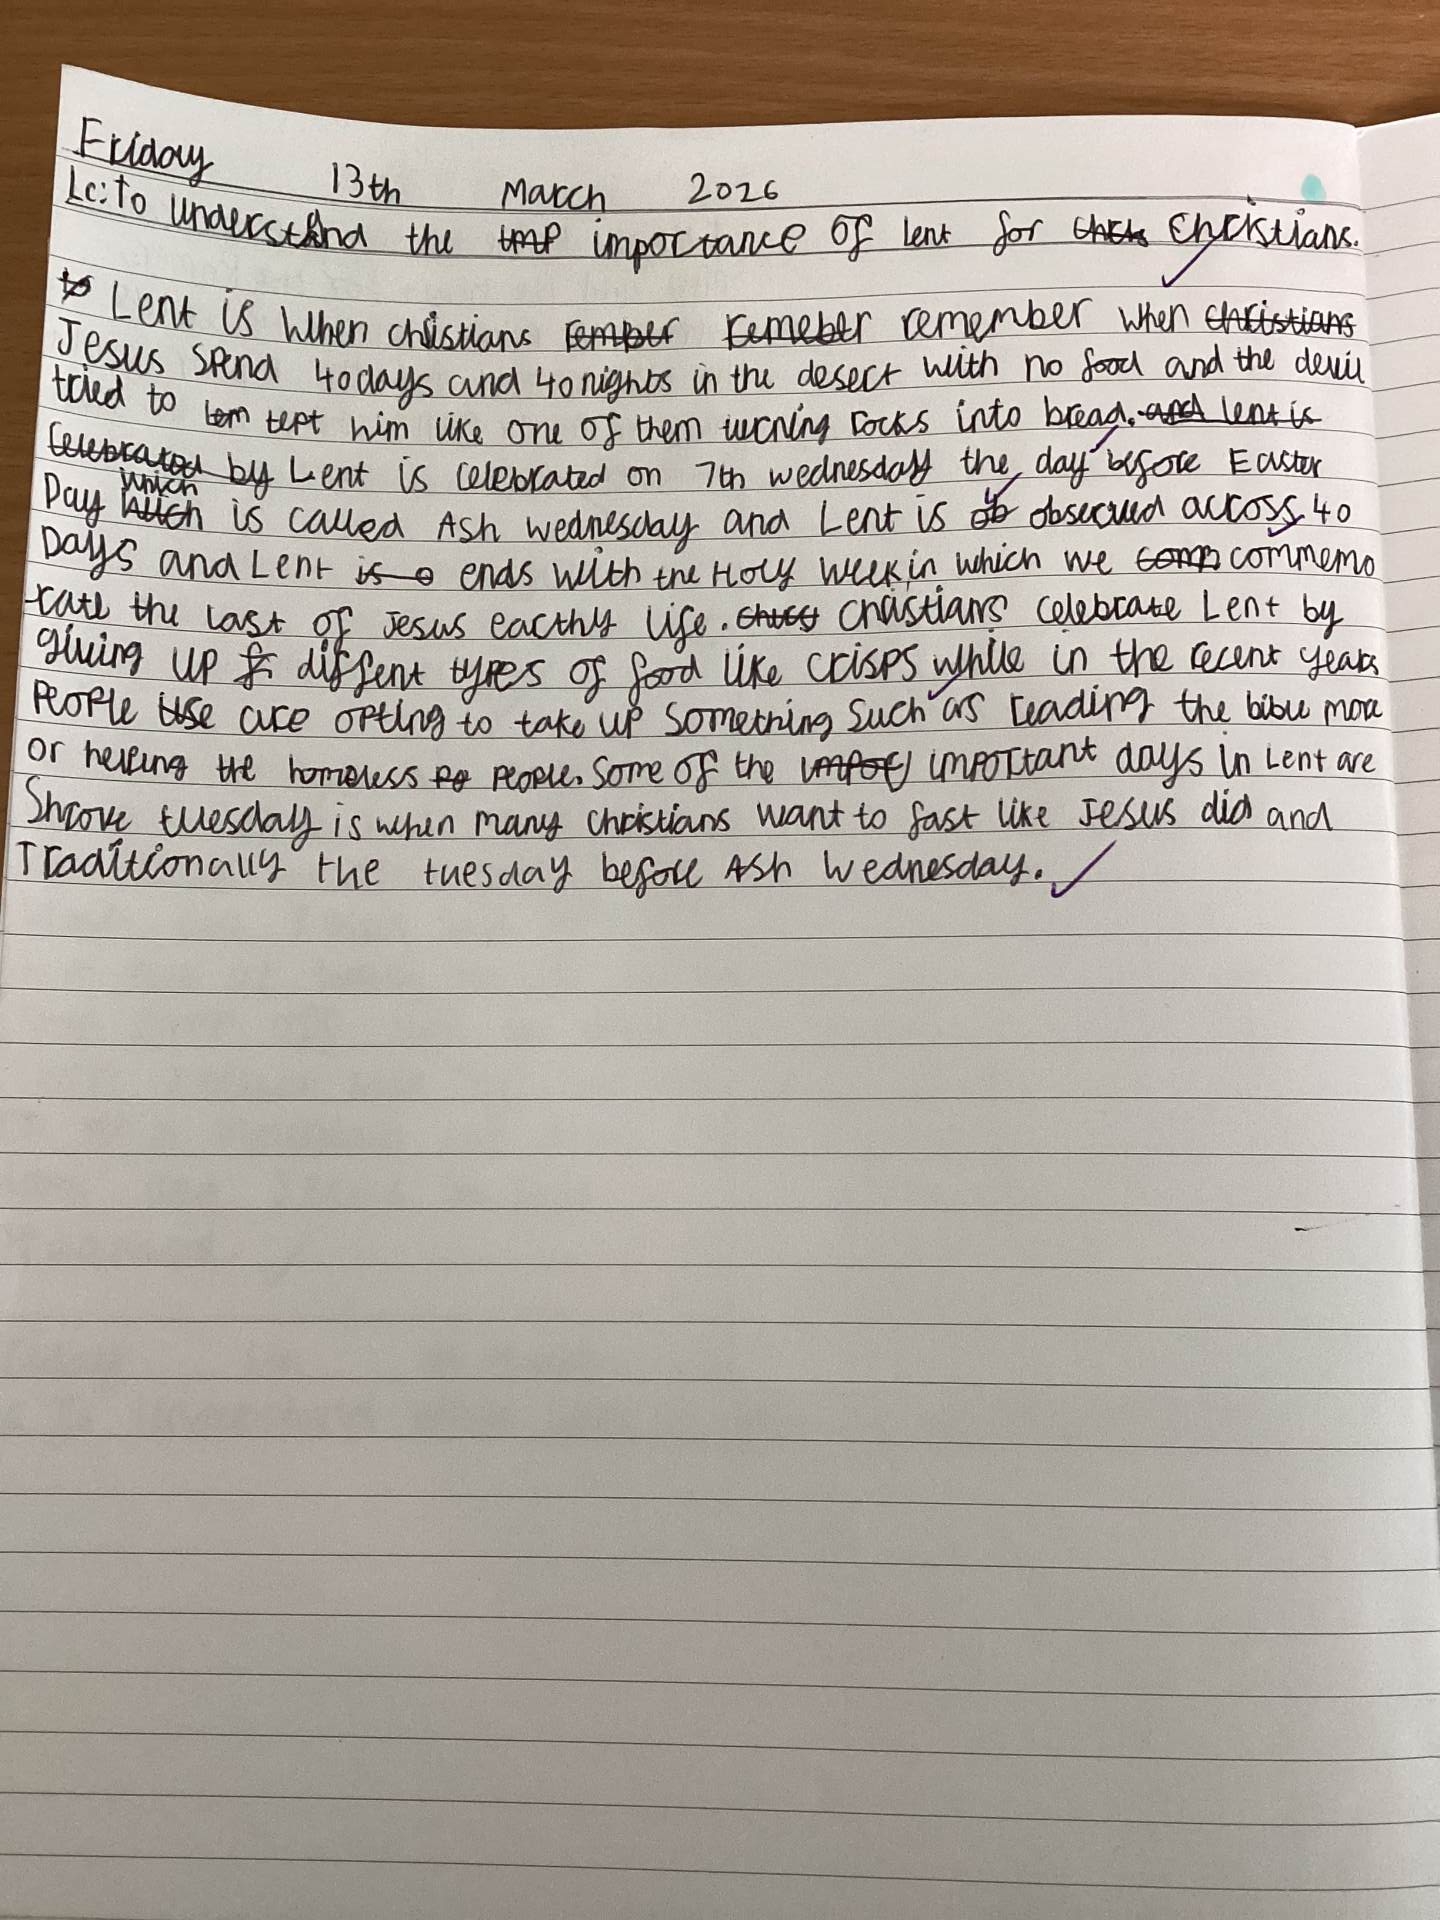 Friday 13th March 2026
Lc: to understand the imp importance of lent for chris Christians.
to Lent is when christians rember remeber remember when christians
Jesus spend 40days and 40nights in the desert with no food and the devil
tried to tem tept him like one of them turning rocks into bread. and lent is
celebrated by Lent is celebrated on 7th wednesday the day before Easter
Day which is called Ash wednesday and Lent is ob observed accross 40
Days and Lent is o ends with the Holy week in which we comm commemo
-rate the last of Jesus earthy life. christ christians celebrate Lent by
giving up diffent types of food like crisps while in the recent years
People use are opting to take up something such as reading the bible more
or helping the homeless pe people. Some of the impor important days in Lent are
Shrove tuesday is when many christians want to fast like Jesus did and
Traditionally the tuesday before Ash Wednesday.